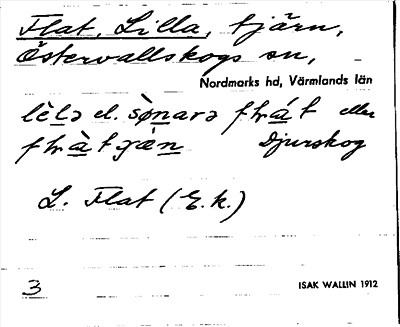 Flat, Lilla, tjärn,
Östervallskogs sn,
Nordmarks hd, Värmlands län
lèlə el. sònarə fḷát eller
fḷàtgæ̀n Djurskog
L. Flat (E.k.)
3 ISAK WALLIN 1912